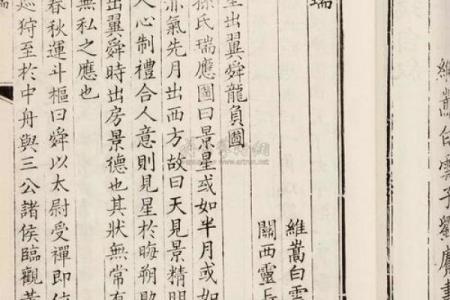 維嵩白雲子劉賡
瑞
維嵩白雲
關西靈
星出翼舜龍負圖
孫氏瑞應圖曰景星或如半月或如
赤氣先月出西方故曰天見景精明
人心制禮合人意則見星於晦朔助
出翼舜時出房景德也其狀無常有
無私之應也
春秋運斗樞曰舜以太尉受禪即
巡狩至於中舟與三公諸侯臨觀黃